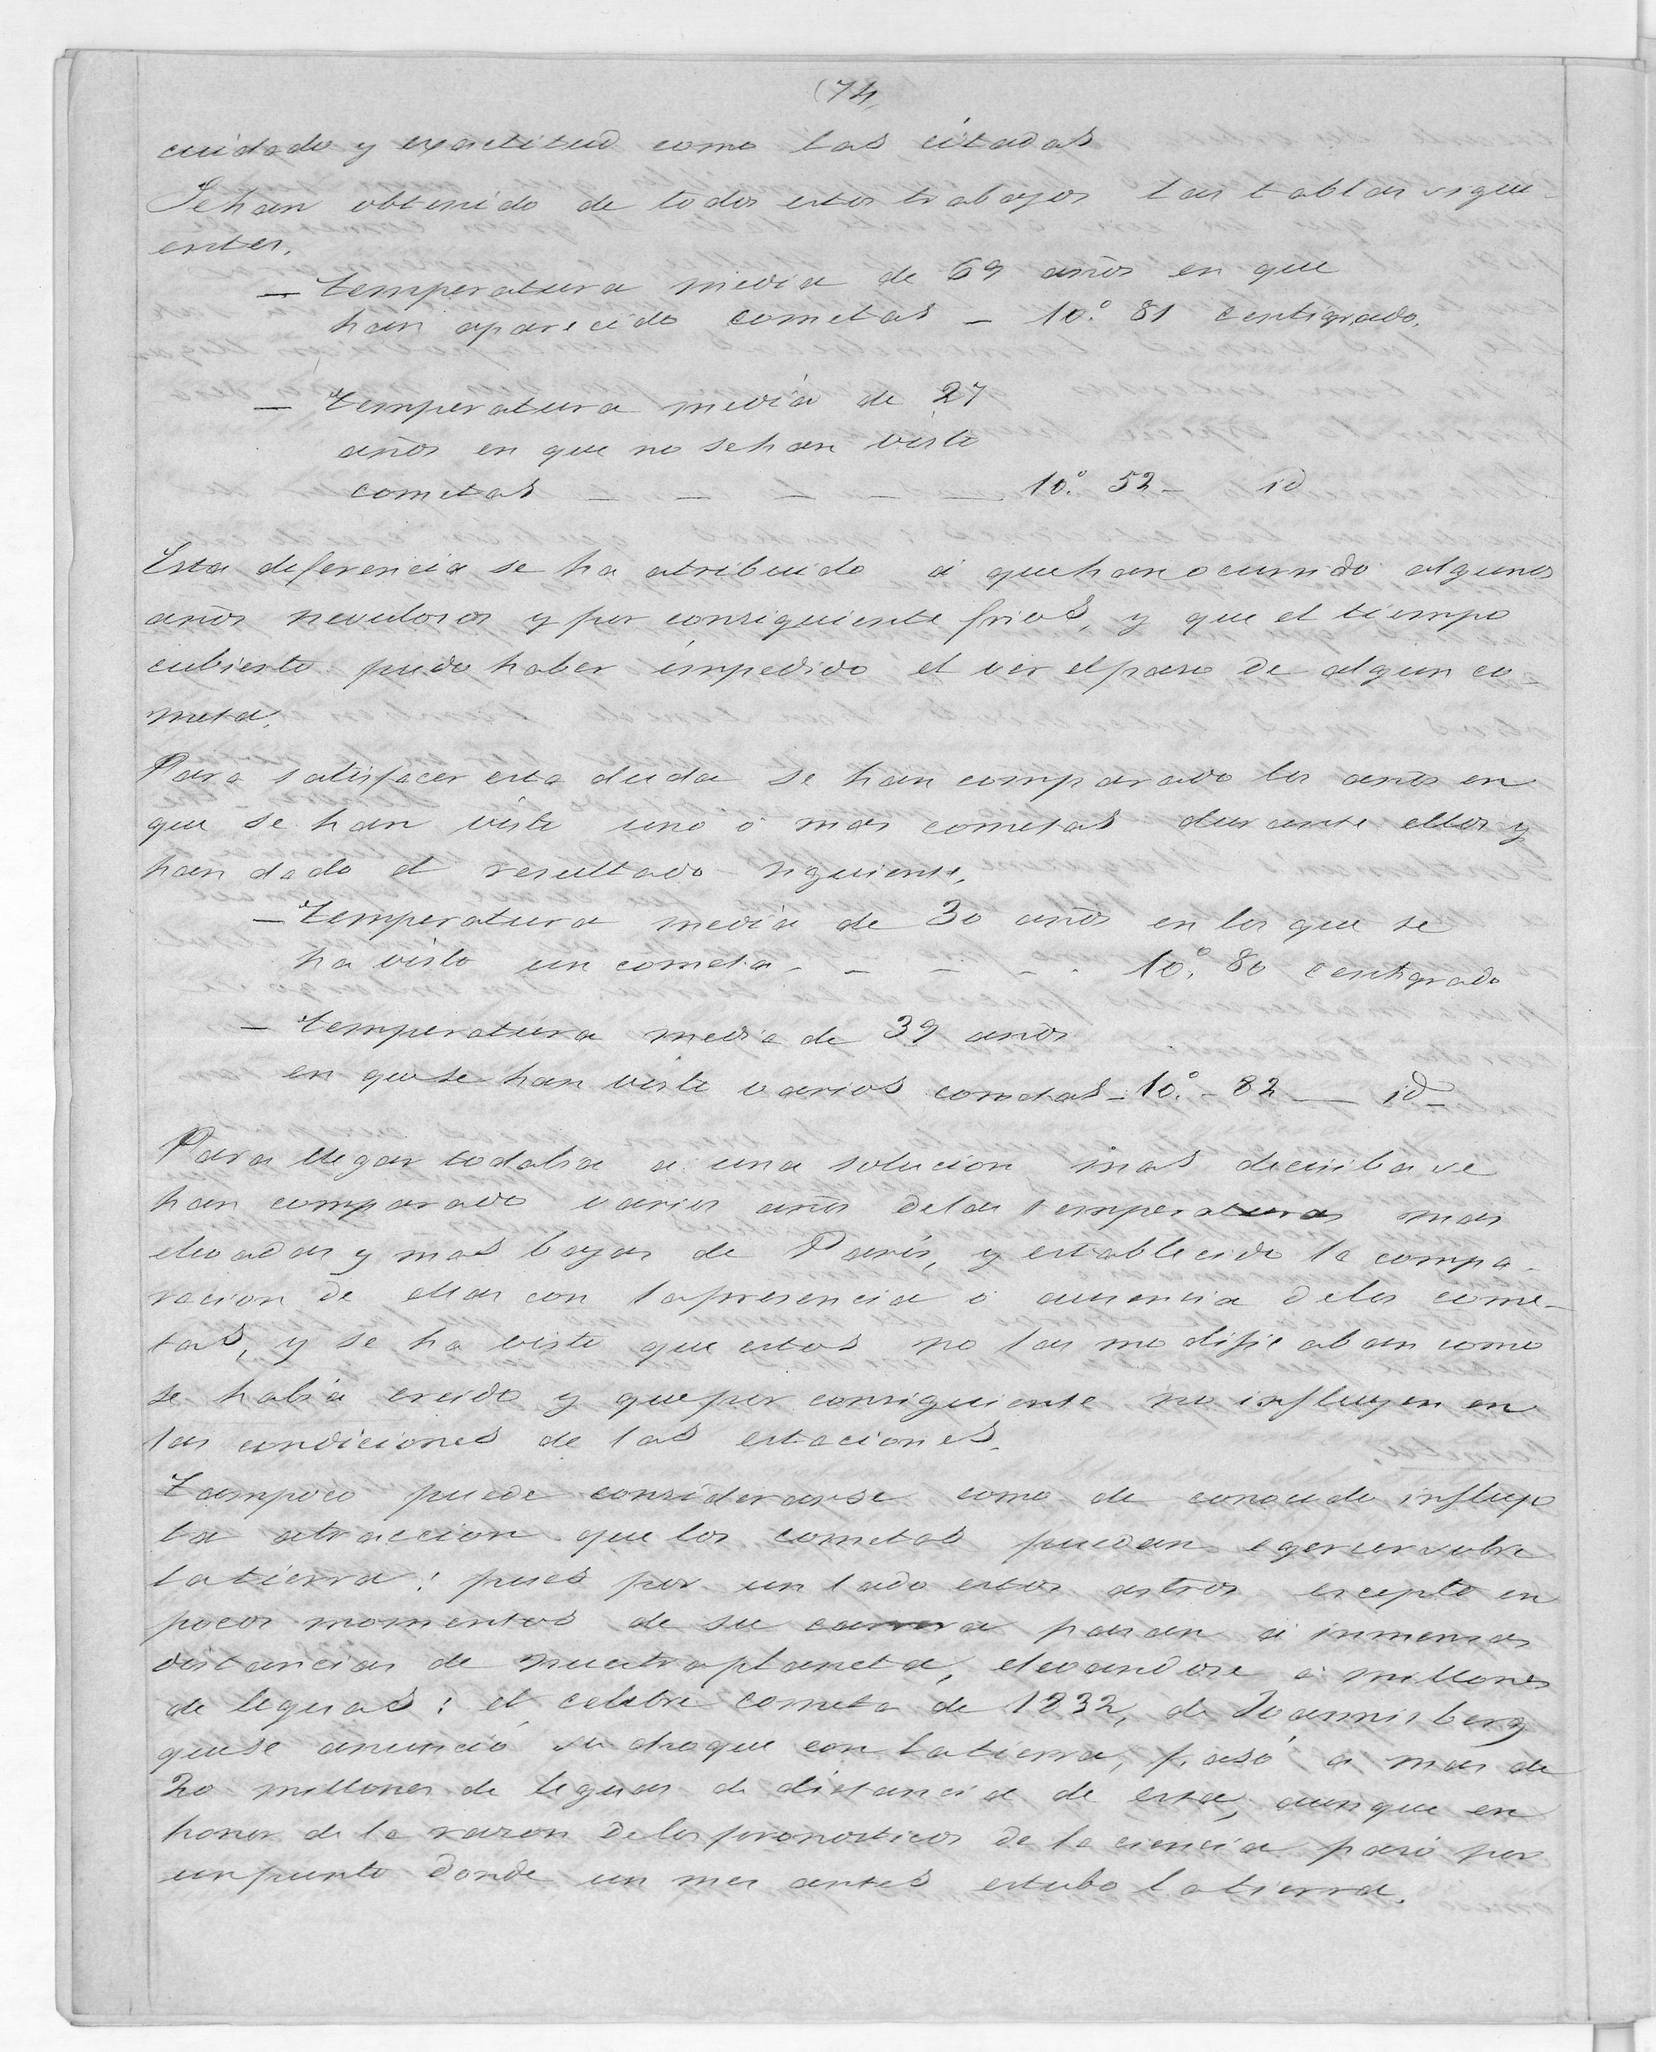 (74,
cuidado y exactitud como las citadas
Sehan obtenido de todos estos trabajos las tablas sigui-
entes.
— temperatura media de 69 años en que
han aparecido cometas — 10.° 81 centigrado.
— temperatura media de 27
años en que no sehan visto
cometas — — — — — 10.° 52 — id
Esta diferencia se ha atribuido á quehan ocurrido algunos
años nevulosos y por consiguiente frios, y que el tiempo
cubierto pudo haber impedido el ver elpaso de algun co-
meta.
Para satisfacer esta duda se han comparado los años en
que se han visto uno ó mas cometas durante ellos y
han dado el resultado siguiente.
— temperatura media de 30 años en los que se
ha visto un cometa - - - - . 10.° 80 centigrado
— temperatura media de 39 años
en quese han visto varios cometas - 10.° - 82 — id —
Para llegar todabia a una solucion mas decisiba se
han comparado varios años delas temperaturas mas
elevadas y mas bajas de Paris, y establecido la compa-
racion de ellas con lapresencia ó ausencia delos come-
tas, y se ha visto que estos no las modificaban como
se habia creido y quepor consiguiente no influyen en
las condiciones de las estaciones.
Tampoco puede considerarse como de conocido influjo
la atraccion que los cometas puedan egercer sobre
latierra: pues por un lado estos astros escepto en
pocos momentos de su carrera pasan á inmensas
distancias de nuestroplaneta, elevandose á millones
de leguas: el celebre cometa de 1832, de Joannisberg
quese anunció su choque con latierra, pasó a mas de
20 millones de leguas de distancia de esta, aunque en
honor de la razon delos pronosticos de la ciencia pasó por
unpunto donde un mes antes estubo latierra.